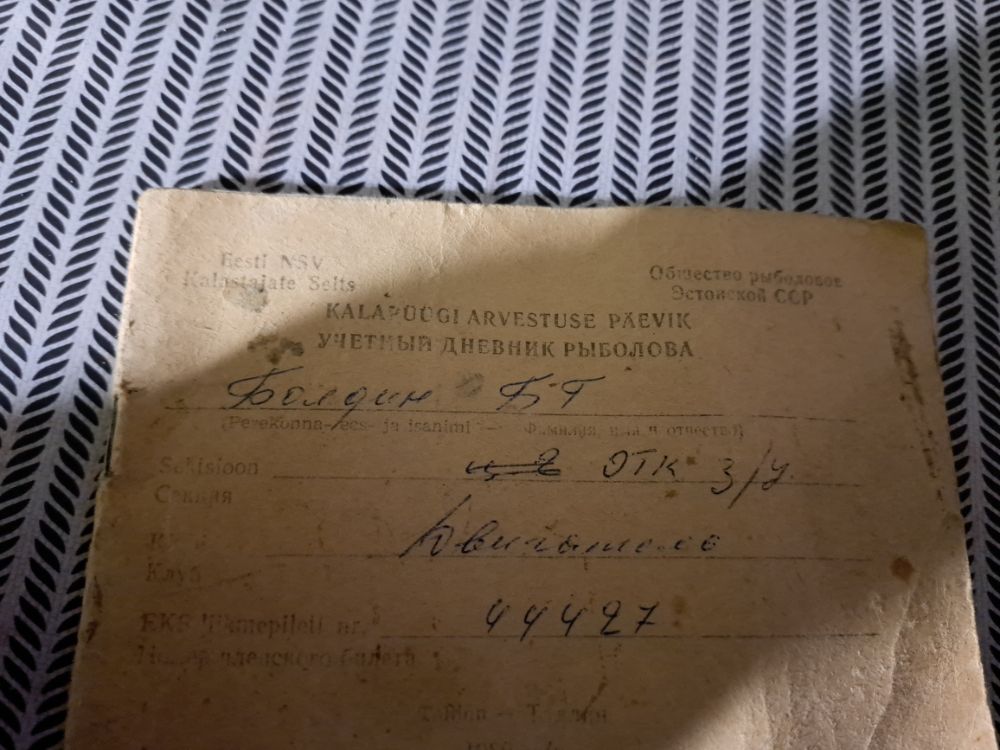 Eesti NSV
Kalastajate Selts
Общество рыболовов
Эстонской ССР
KALAPÜÜGI ARVESTUSE PÄEVIK
УЧЕТНЫЙ ДНЕВНИК РЫБОЛОВА
Болдин БГ
(Perekonna-, ees- ja isanimi — Фамилия, имя и отчество)
Sektsioon
ОТК з/у
Секция
Клуб
EKS liikmepileti nr. 44427
членского билета
Tallinn — Таллин